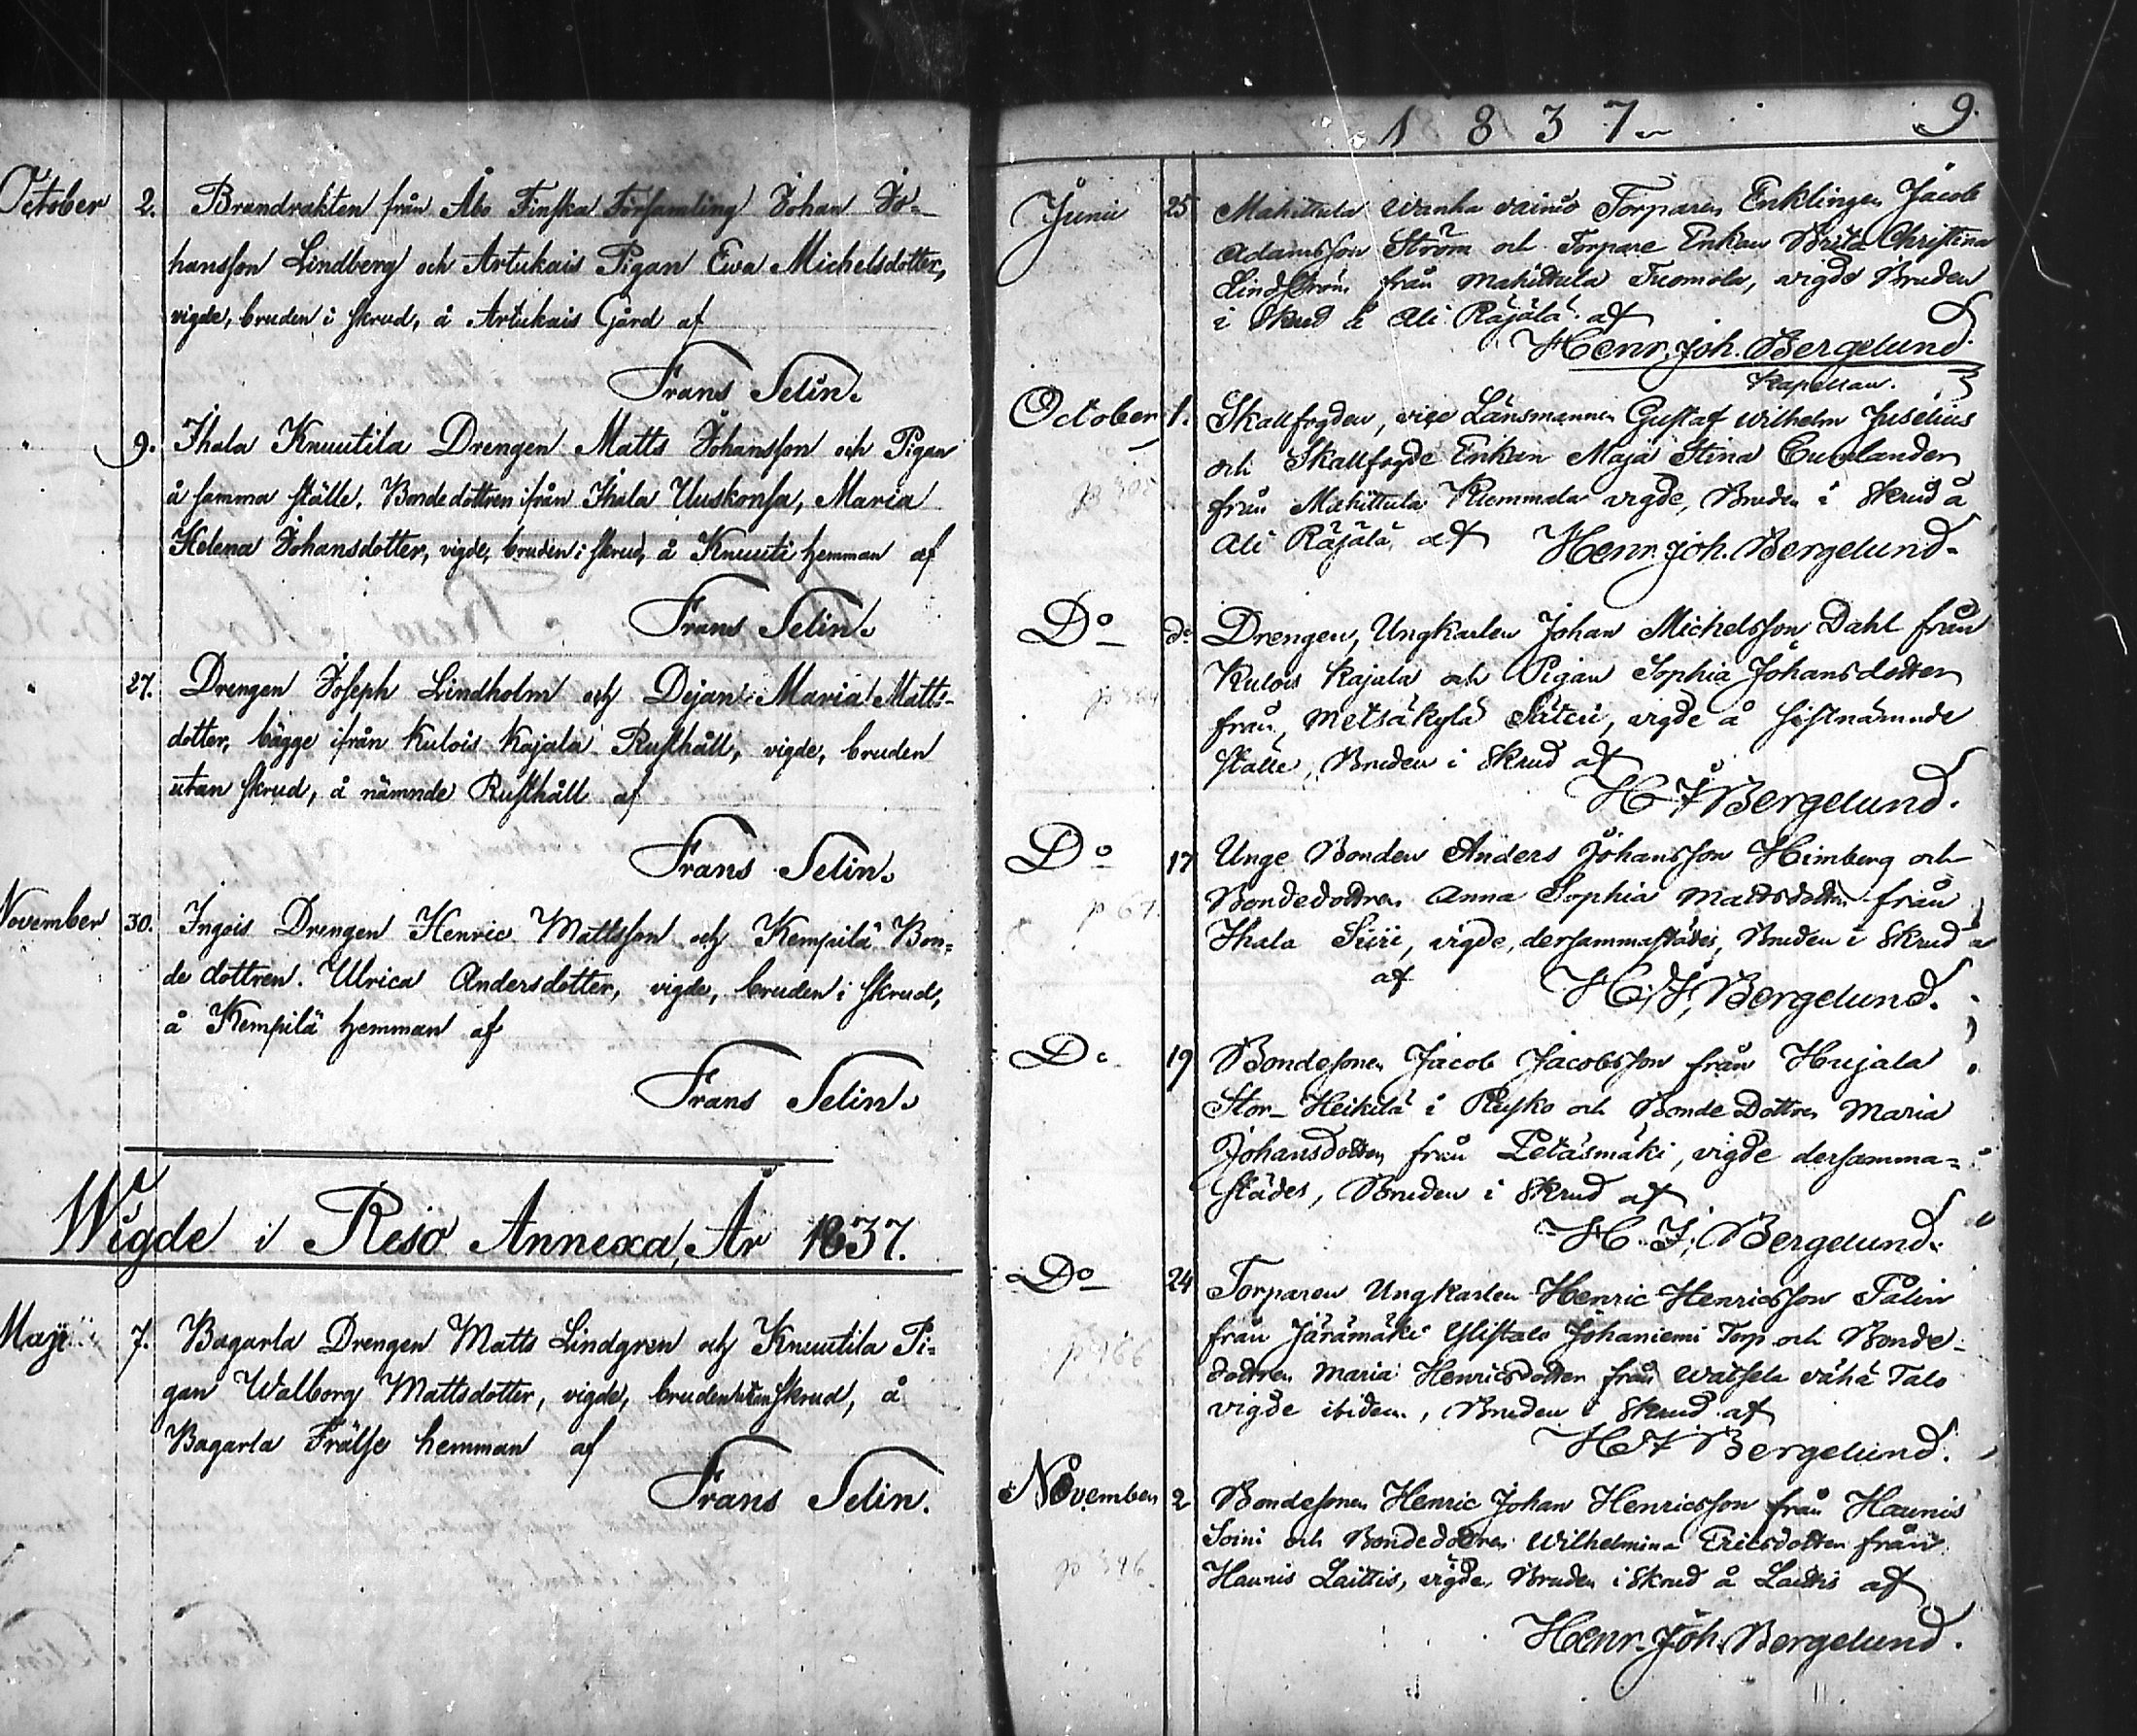 October 2. Brandvakten från Åbo Finska Församling Johan Jo-
hansson Lindberg och Artukais Pigan Ewa Michelsdotter,
vigde, bruden i skrud, å Artukais Gård af
Frans Selin.
" 9. Ihala Knuutila Drengen Matts Johansson och Pigan
å samma ställe, Bondedottren ifrån Ihala Uuskonsa, Maria
Helena Johansdotter, vigde, bruden i skrud, å Knuuti hemman af
Frans Selin.
" 27. Drengen Joseph Lindholm och Dejan Maria Matts-
dotter, bägge ifrån Kulois Kajala Rusthåll, vigde, bruden
utan skrud, å nämnde Rusthåll af
Frans Selin.
November 30. Ingois Drengen Henric Mattsson och Kempilä Bon-
de dottren Ulrica Andersdotter, vigde, bruden i skrud,
å Kempilä hemman af
Frans Selin.
Wigde i Reso Annexa, År 1837.
Maji 7. Bagarla Drengen Matts Lindgren och Knuutila Pi-
gan Walborg Mattsdotter, vigde, bruden utan skrud, å
Bagarla Frälse hemman af
Frans Selin.
1837 9.
Junii 25 Mahittula Wanha vainio Torparen Enklingen Jacob
Adamsson Ström och Torpare Enkan Brita Christina
Lindström från Mahittula Tuomola, vigde Bruden
i skrud å Ali Räjälä af
Henr. Joh. Bergelund
Kapellan.
October 1. Skallfogden, vice Länsmannen Gustaf Wilhelm Juselius
och Skallfogde Enkan Maja Stina Cumlander
p 305
från Mahittula Klemmala vigde, Bruden i Skrud å
Ali Räjälä, af Henr. Joh. Bergelund.
Do do Drengen, Ungkarlen Johan Michelsson Dahl från
Kulois Kajala och Pigan Sophia Johansdotter
p 304
från Metsäkylä Säteri, vigde å sistnämnde
ställe, Bruden i Skrud af
H J Bergelund.
Do 17 Unge Bonden Anders Johansson Himberg och
p 67.
Bondedottren Anna Sophia Mattsdotter från
Ihala Siiri, vigde, dersammastädes, Bruden i Skrud
af H. J. Bergelund.
Do 19 Bondesonen Jacob Jacobsson från Hujala
Stor-Heikilä i Rusko och Bonde Dottren Maria
Johansdotter från Petäsmäki, vigde dersamma-
städes, Bruden i Skrud af
H. J. Bergelund.
Do 24 Torparen Ungkarlen Henric Henricsson Palin
från Järämäki Ylistalo Johaniemi Torp och Bonde-
p 166
dottren Maria Henricsdotter från Watsela vähä Talo
vigde ibidem, Bruden i Skrud af
H J Bergelund.
November 2 Bondesonen Henric Johan Henricsson från Haunis
Soini och Bondedottren Wilhelmina Ericsdotter från
p 346.
Haunis Laittis, vigde, Bruden i Skrud å Laittis af
Henr. Joh. Bergelund.